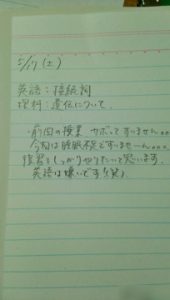 5/17 (土)
英語：接続詞
理科：遺伝について.
・前回の授業 サボってすいません。。
今回は睡眠不足ですいません。。。
復習をしっかりやりたいと思います.
英語は嫌いです!(笑)